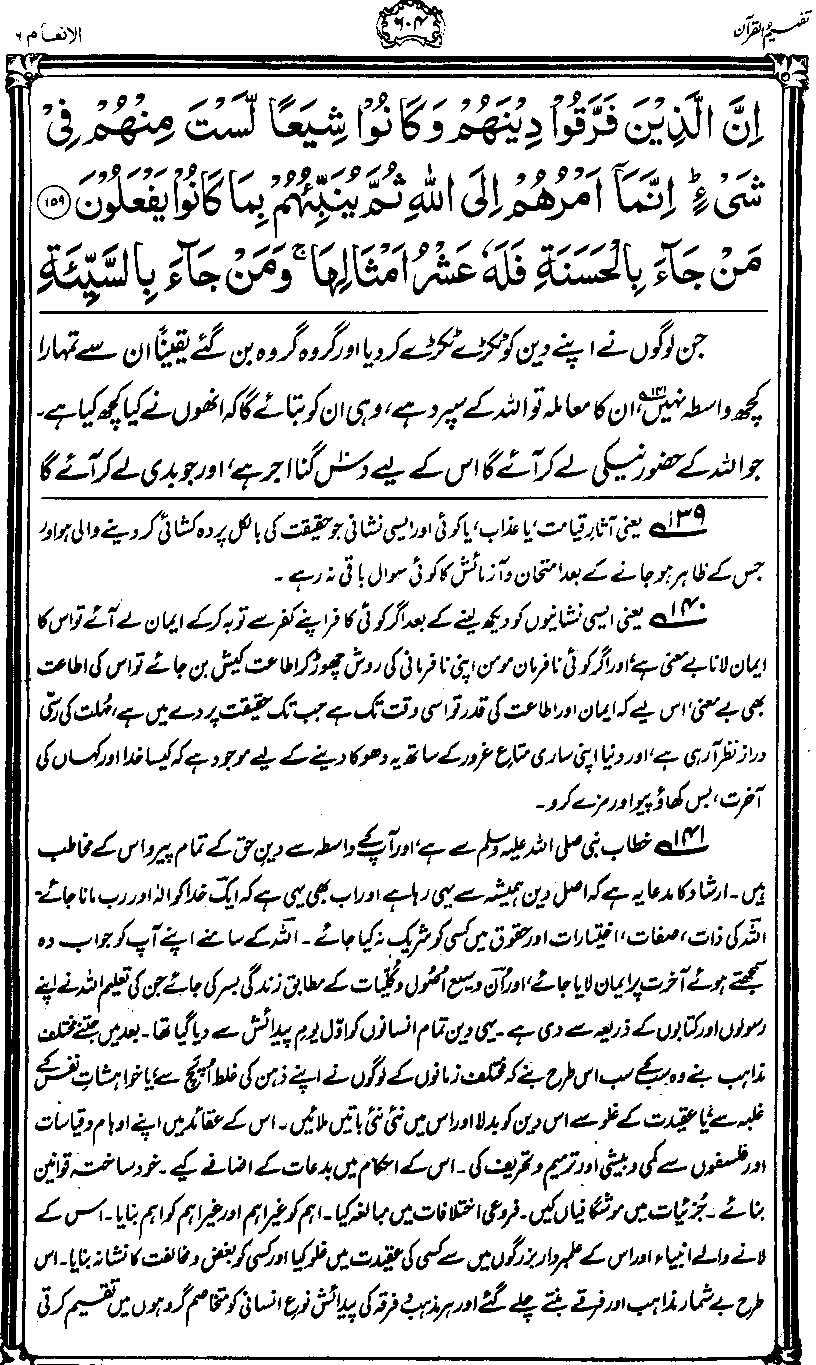 تفہیم القرآن
۶۰۴
الانعام ۶
اِنَّ الَّذِیْنَ فَرَّقُوْا دِیْنَهُمْ وَ كَانُوْا شِیَعًا لَّسْتَ مِنْهُمْ فِیْ
شَیْءٍ ؕ اِنَّمَاۤ اَمْرُهُمْ اِلَی اللّٰهِ ثُمَّ یُنَبِّئُهُمْ بِمَا كَانُوْا یَفْعَلُوْنَ ﴿۱۵۹﴾
مَنْ جَآءَ بِالْحَسَنَةِ فَلَهٗ عَشْرُ اَمْثَالِهَا ۚ وَ مَنْ جَآءَ بِالسَّیِّئَةِ
جن لوگوں نے اپنے دین کو ٹکڑے ٹکڑے کر دیا اور گروہ گروہ بن گئے یقیناً ان سے تمہارا
کچھ واسطہ نہیں،۱۴۱ ان کا معاملہ تو اللہ کے سپرد ہے، وہی ان کو بتائے گا کہ انھوں نے کیا کچھ کیا ہے۔
جو اللہ کے حضور نیکی لے کر آئے گا اس کے لیے دس گنا اجر ہے، اور جو بدی لے کر آئے گا
۱۳۹ یعنی آثارِ قیامت، یا عذاب، یا کوئی اور ایسی نشانی جو حقیقت کی بالکل پردہ کشائی کر دینے والی ہو اور
جس کے ظاہر ہو جانے کے بعد امتحان و آزمائش کا کوئی سوال باقی نہ رہے۔
۱۴۰ یعنی ایسی نشانیوں کو دیکھ لینے کے بعد اگر کوئی کافر اپنے کفر سے توبہ کر کے ایمان لے آئے تو اس کا
ایمان لانا بے معنی ہے، اور اگر کوئی نافرمان مومن اپنی نافرمانی کی روش چھوڑ کر اطاعت کیش بن جائے تو اس کی اطاعت
بھی بے معنی، اس لیے کہ ایمان اور اطاعت کی قدر تو اسی وقت تک ہے جب تک حقیقت پردے میں ہے، مہلت کی رسّی
دراز نظر آ رہی ہے، اور دنیا اپنی ساری متاعِ غرور کے ساتھ یہ دھوکا دینے کے لیے موجود ہے کہ کیسا خدا اور کہاں کی
آخرت، بس کھاؤ پیو اور مزے کرو۔
۱۴۱ خطاب نبی صلی اللہ علیہ وسلم سے ہے، اور آپ کے واسطہ سے دینِ حق کے تمام پیرو اس کے مخاطب
ہیں۔ ارشاد کا مدعا یہ ہے کہ اصل دین ہمیشہ سے یہی رہا ہے اور اب بھی یہی ہے کہ ایک خدا کو الٰہ اور رب مانا جائے۔
اللہ کی ذات، صفات، اختیارات اور حقوق میں کسی کو شریک نہ کیا جائے۔ اللہ کے سامنے اپنے آپ کو جواب دہ
سمجھتے ہوئے آخرت پر ایمان لایا جائے، اور اُن وسیع اصول و کلیات کے مطابق زندگی بسر کی جائے جن کی تعلیم اللہ نے اپنے
رسولوں اور کتابوں کے ذریعہ سے دی ہے۔ یہی دین تمام انسانوں کو اوّل یومِ پیدائش سے دیا گیا تھا۔ بعد میں جتنے مختلف
مذاہب بنے وہ سب کے سب اس طرح بنے کہ مختلف زمانوں کے لوگوں نے اپنے ذہن کی غلط اُپج سے، یا خواہشاتِ نفس کے
غلبہ سے، یا عقیدت کے غلو سے اس دین کو بدلا اور اس میں نئی نئی باتیں ملائیں۔ اس کے عقائد میں اپنے اوہام و قیاسات
اور فلسفوں سے کمی و بیشی اور ترمیم و تحریف کی۔ اس کے احکام میں بدعات کے اضافے کیے۔ خود ساختہ قوانین
بنائے۔ جزئیات میں موشگافیاں کیں۔ فروعی اختلافات میں مبالغہ کیا۔ اہم کو غیر اہم اور غیر اہم کو اہم بنایا۔ اس کے
لانے والے انبیاء اور اس کے علمبردار بزرگوں میں سے کسی کی عقیدت میں غلو کیا اور کسی کو بغض و مخالفت کا نشانہ بنایا۔ اس
طرح بے شمار مذاہب اور فرقے بنتے چلے گئے اور ہر مذہب و فرقہ کی پیدائش نوعِ انسانی کو متخاصم گروہوں میں تقسیم کرتی